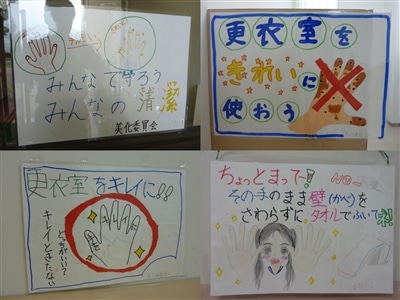 みんなで守ろう
みんなの清潔
美化委員会
更衣室を
きれいに
使おう
更衣室をキレイに!!
どっちがいい?
キレイときたない
ちょっとまってー!
その手のまま壁(かべ)を
さわらずにタオルでふいてネ!